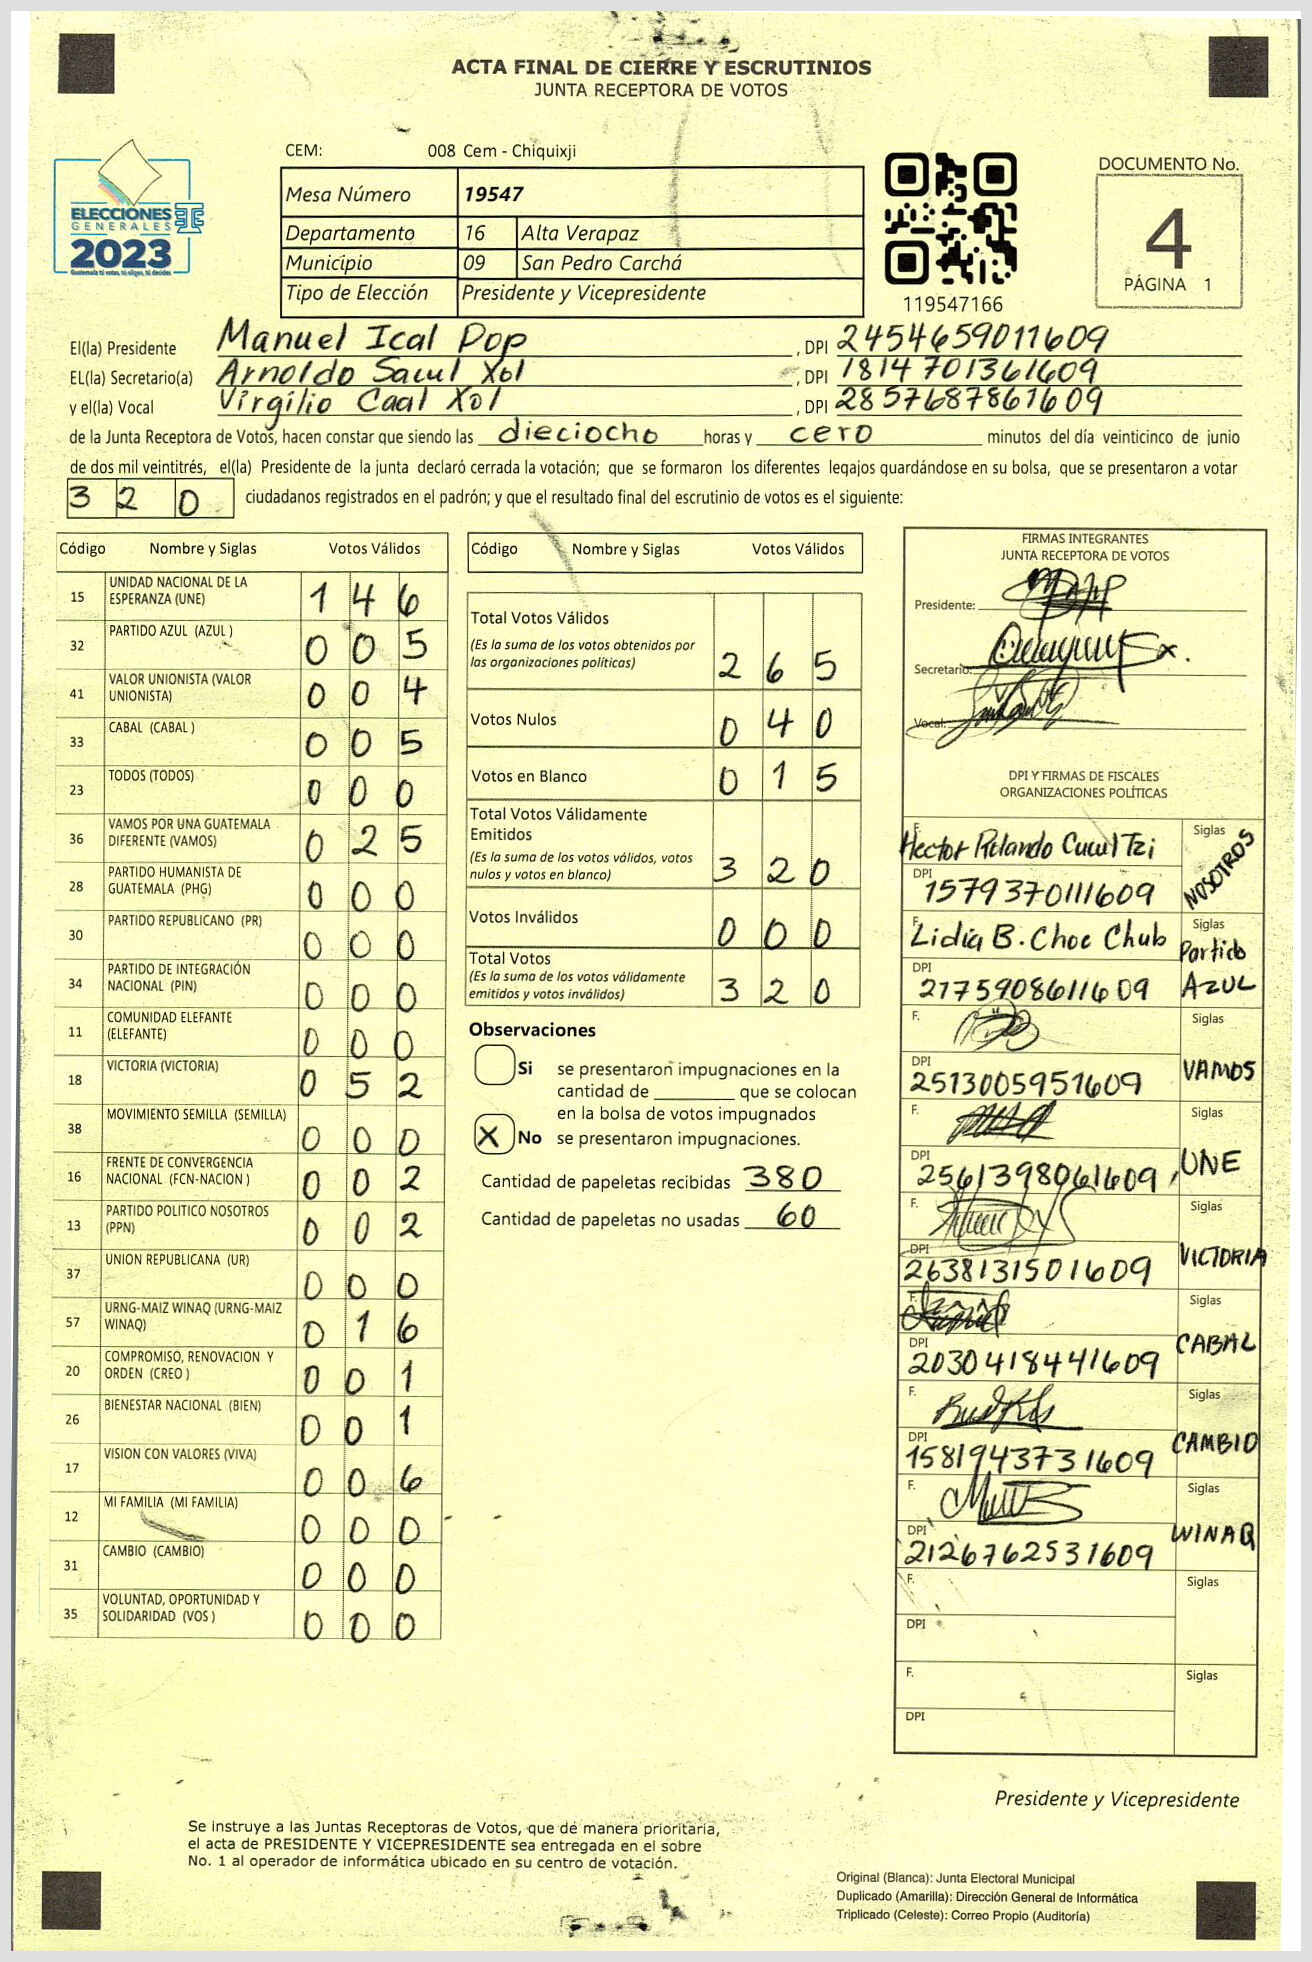 ACTA FINAL DE CIERRE Y ESCRUTINIOS
JUNTA RECEPTORA DE VOTOS
CEM: 008 Cem - Chiquixji
ELECCIONES
GENERALES
2023
Guatemala tú votas, tú eliges, tú decides
Mesa Número 19547
Departamento 16 Alta Verapaz
Municipio 09 San Pedro Carchá
Tipo de Elección Presidente y Vicepresidente
119547166
DOCUMENTO No.
4
PÁGINA 1
El(la) Presidente Manuel Ical Pop , DPI 2454659011609
EL(la) Secretario(a) Arnoldo Sacul Xol , DPI 1814701361609
y el(la) Vocal Virgilio Caal Xol , DPI 2857687861609
de la Junta Receptora de Votos, hacen constar que siendo las dieciocho horas y cero minutos del día veinticinco de junio
de dos mil veintitrés, el(la) Presidente de la junta declaró cerrada la votación; que se formaron los diferentes legajos guardándose en su bolsa, que se presentaron a votar
320 ciudadanos registrados en el padrón; y que el resultado final del escrutinio de votos es el siguiente:
Código Nombre y Siglas Votos Válidos
15 UNIDAD NACIONAL DE LA ESPERANZA (UNE) 146
32 PARTIDO AZUL (AZUL ) 005
41 VALOR UNIONISTA (VALOR UNIONISTA) 004
33 CABAL (CABAL ) 005
23 TODOS (TODOS) 000
36 VAMOS POR UNA GUATEMALA DIFERENTE (VAMOS) 025
28 PARTIDO HUMANISTA DE GUATEMALA (PHG) 000
30 PARTIDO REPUBLICANO (PR) 000
34 PARTIDO DE INTEGRACIÓN NACIONAL (PIN) 000
11 COMUNIDAD ELEFANTE (ELEFANTE) 000
18 VICTORIA (VICTORIA) 052
38 MOVIMIENTO SEMILLA (SEMILLA) 000
16 FRENTE DE CONVERGENCIA NACIONAL (FCN-NACION ) 002
13 PARTIDO POLITICO NOSOTROS (PPN) 002
37 UNION REPUBLICANA (UR) 000
57 URNG-MAIZ WINAQ (URNG-MAIZ WINAQ) 016
20 COMPROMISO, RENOVACION Y ORDEN (CREO ) 001
26 BIENESTAR NACIONAL (BIEN) 001
17 VISION CON VALORES (VIVA) 006
12 MI FAMILIA (MI FAMILIA) 000
31 CAMBIO (CAMBIO) 000
35 VOLUNTAD, OPORTUNIDAD Y SOLIDARIDAD (VOS ) 000
Código Nombre y Siglas Votos Válidos
Total Votos Válidos
(Es la suma de los votos obtenidos por
las organizaciones políticas) 265
Votos Nulos 040
Votos en Blanco 015
Total Votos Válidamente
Emitidos
(Es la suma de los votos válidos, votos
nulos y votos en blanco) 320
Votos Inválidos 000
Total Votos
(Es la suma de los votos válidamente
emitidos y votos inválidos) 320
Observaciones
Si se presentaron impugnaciones en la
cantidad de ________ que se colocan
en la bolsa de votos impugnados
X No se presentaron impugnaciones.
Cantidad de papeletas recibidas 380
Cantidad de papeletas no usadas 60
FIRMAS INTEGRANTES
JUNTA RECEPTORA DE VOTOS
Presidente:
Secretario:
Vocal:
DPI Y FIRMAS DE FISCALES
ORGANIZACIONES POLÍTICAS
F. Hector Rolando Cucul Tzi Siglas NOSOTROS
DPI 1579370111609
F. Lidia B. Choc Chub Siglas Partido AZUL
DPI 2175908611609
F. Siglas VAMOS
DPI 2513005951609
F. Siglas UNE
DPI 2561398061609
F. Siglas VICTORIA
DPI 2638131501609
F. Siglas CABAL
DPI 2030418441609
F. Siglas CAMBIO
DPI 1581943731609
F. Siglas WINAQ
DPI 2126762531609
F. Siglas
DPI
F. Siglas
DPI
Presidente y Vicepresidente
Se instruye a las Juntas Receptoras de Votos, que de manera prioritaria,
el acta de PRESIDENTE Y VICEPRESIDENTE sea entregada en el sobre
No. 1 al operador de informática ubicado en su centro de votación.
Original (Blanca): Junta Electoral Municipal
Duplicado (Amarilla): Dirección General de Informática
Triplicado (Celeste): Correo Propio (Auditoría)